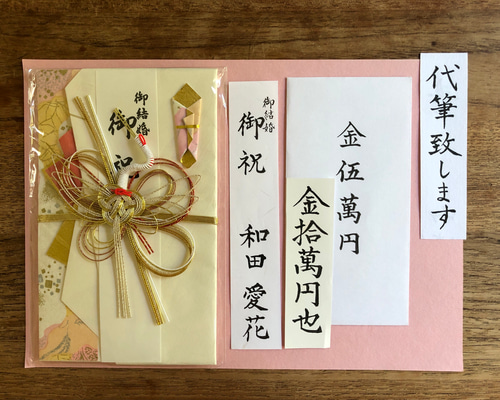 代筆致します
金伍萬円
金拾萬円也
御結婚
御祝 和田愛花
御結婚
御祝